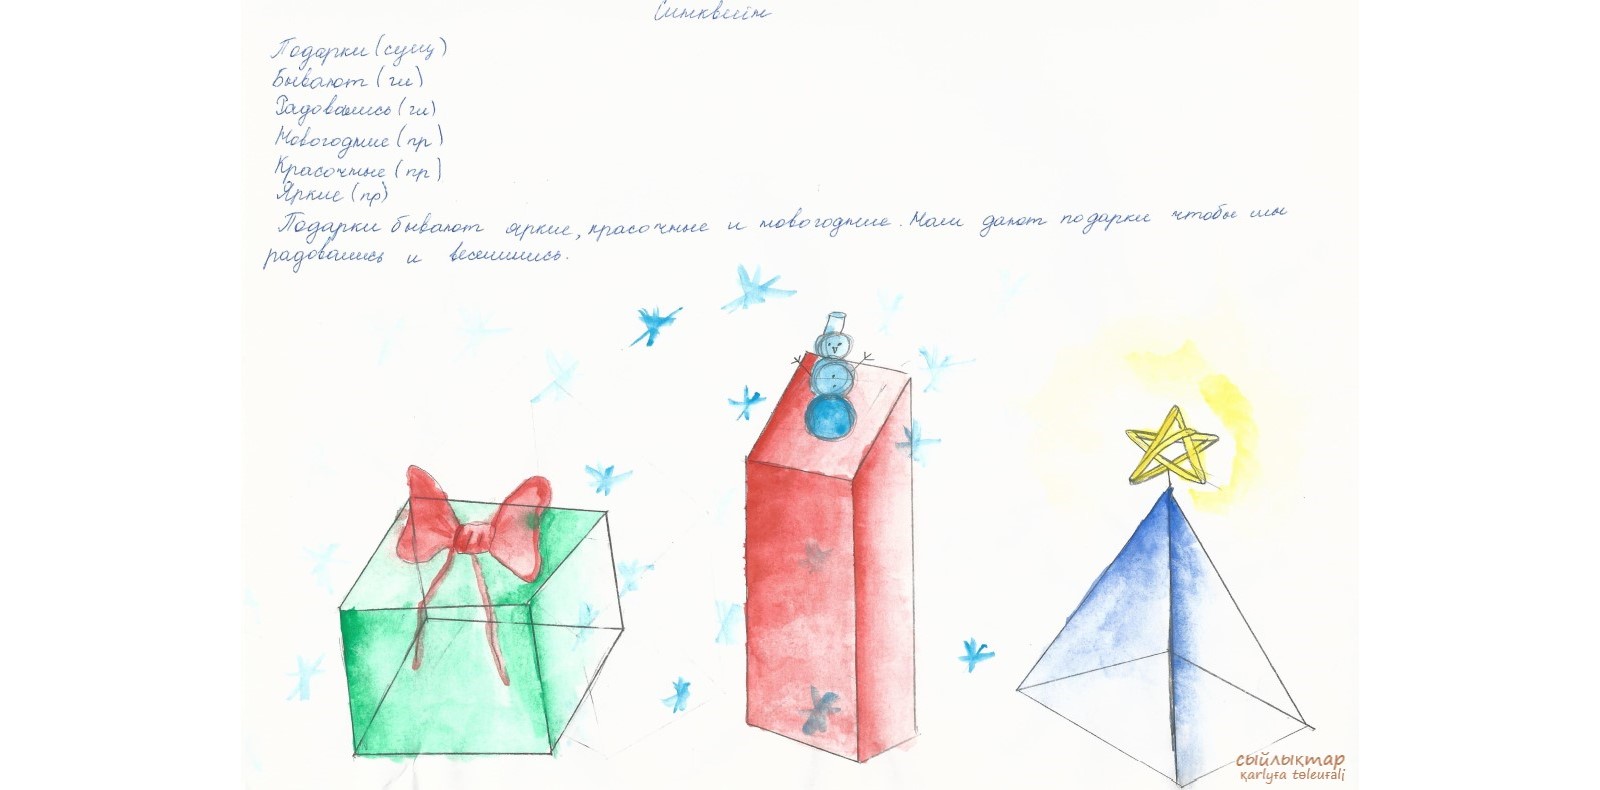 Синквейн
Подарки (сущ)
Бывают (гл)
Радовались (гл)
Новогодние (пр)
Красочные (пр)
Яркие (пр)
Подарки бывают яркие, красочные и новогодние. Нам дают подарки чтобы мы
радовались и веселились.
сыйлықтар
qarlyğa töleuğali